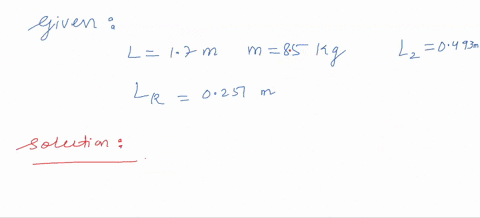 Given :
L = 1.7 m m = 85 Kg L2 = 0.493m
LR = 0.257 m
Solution :